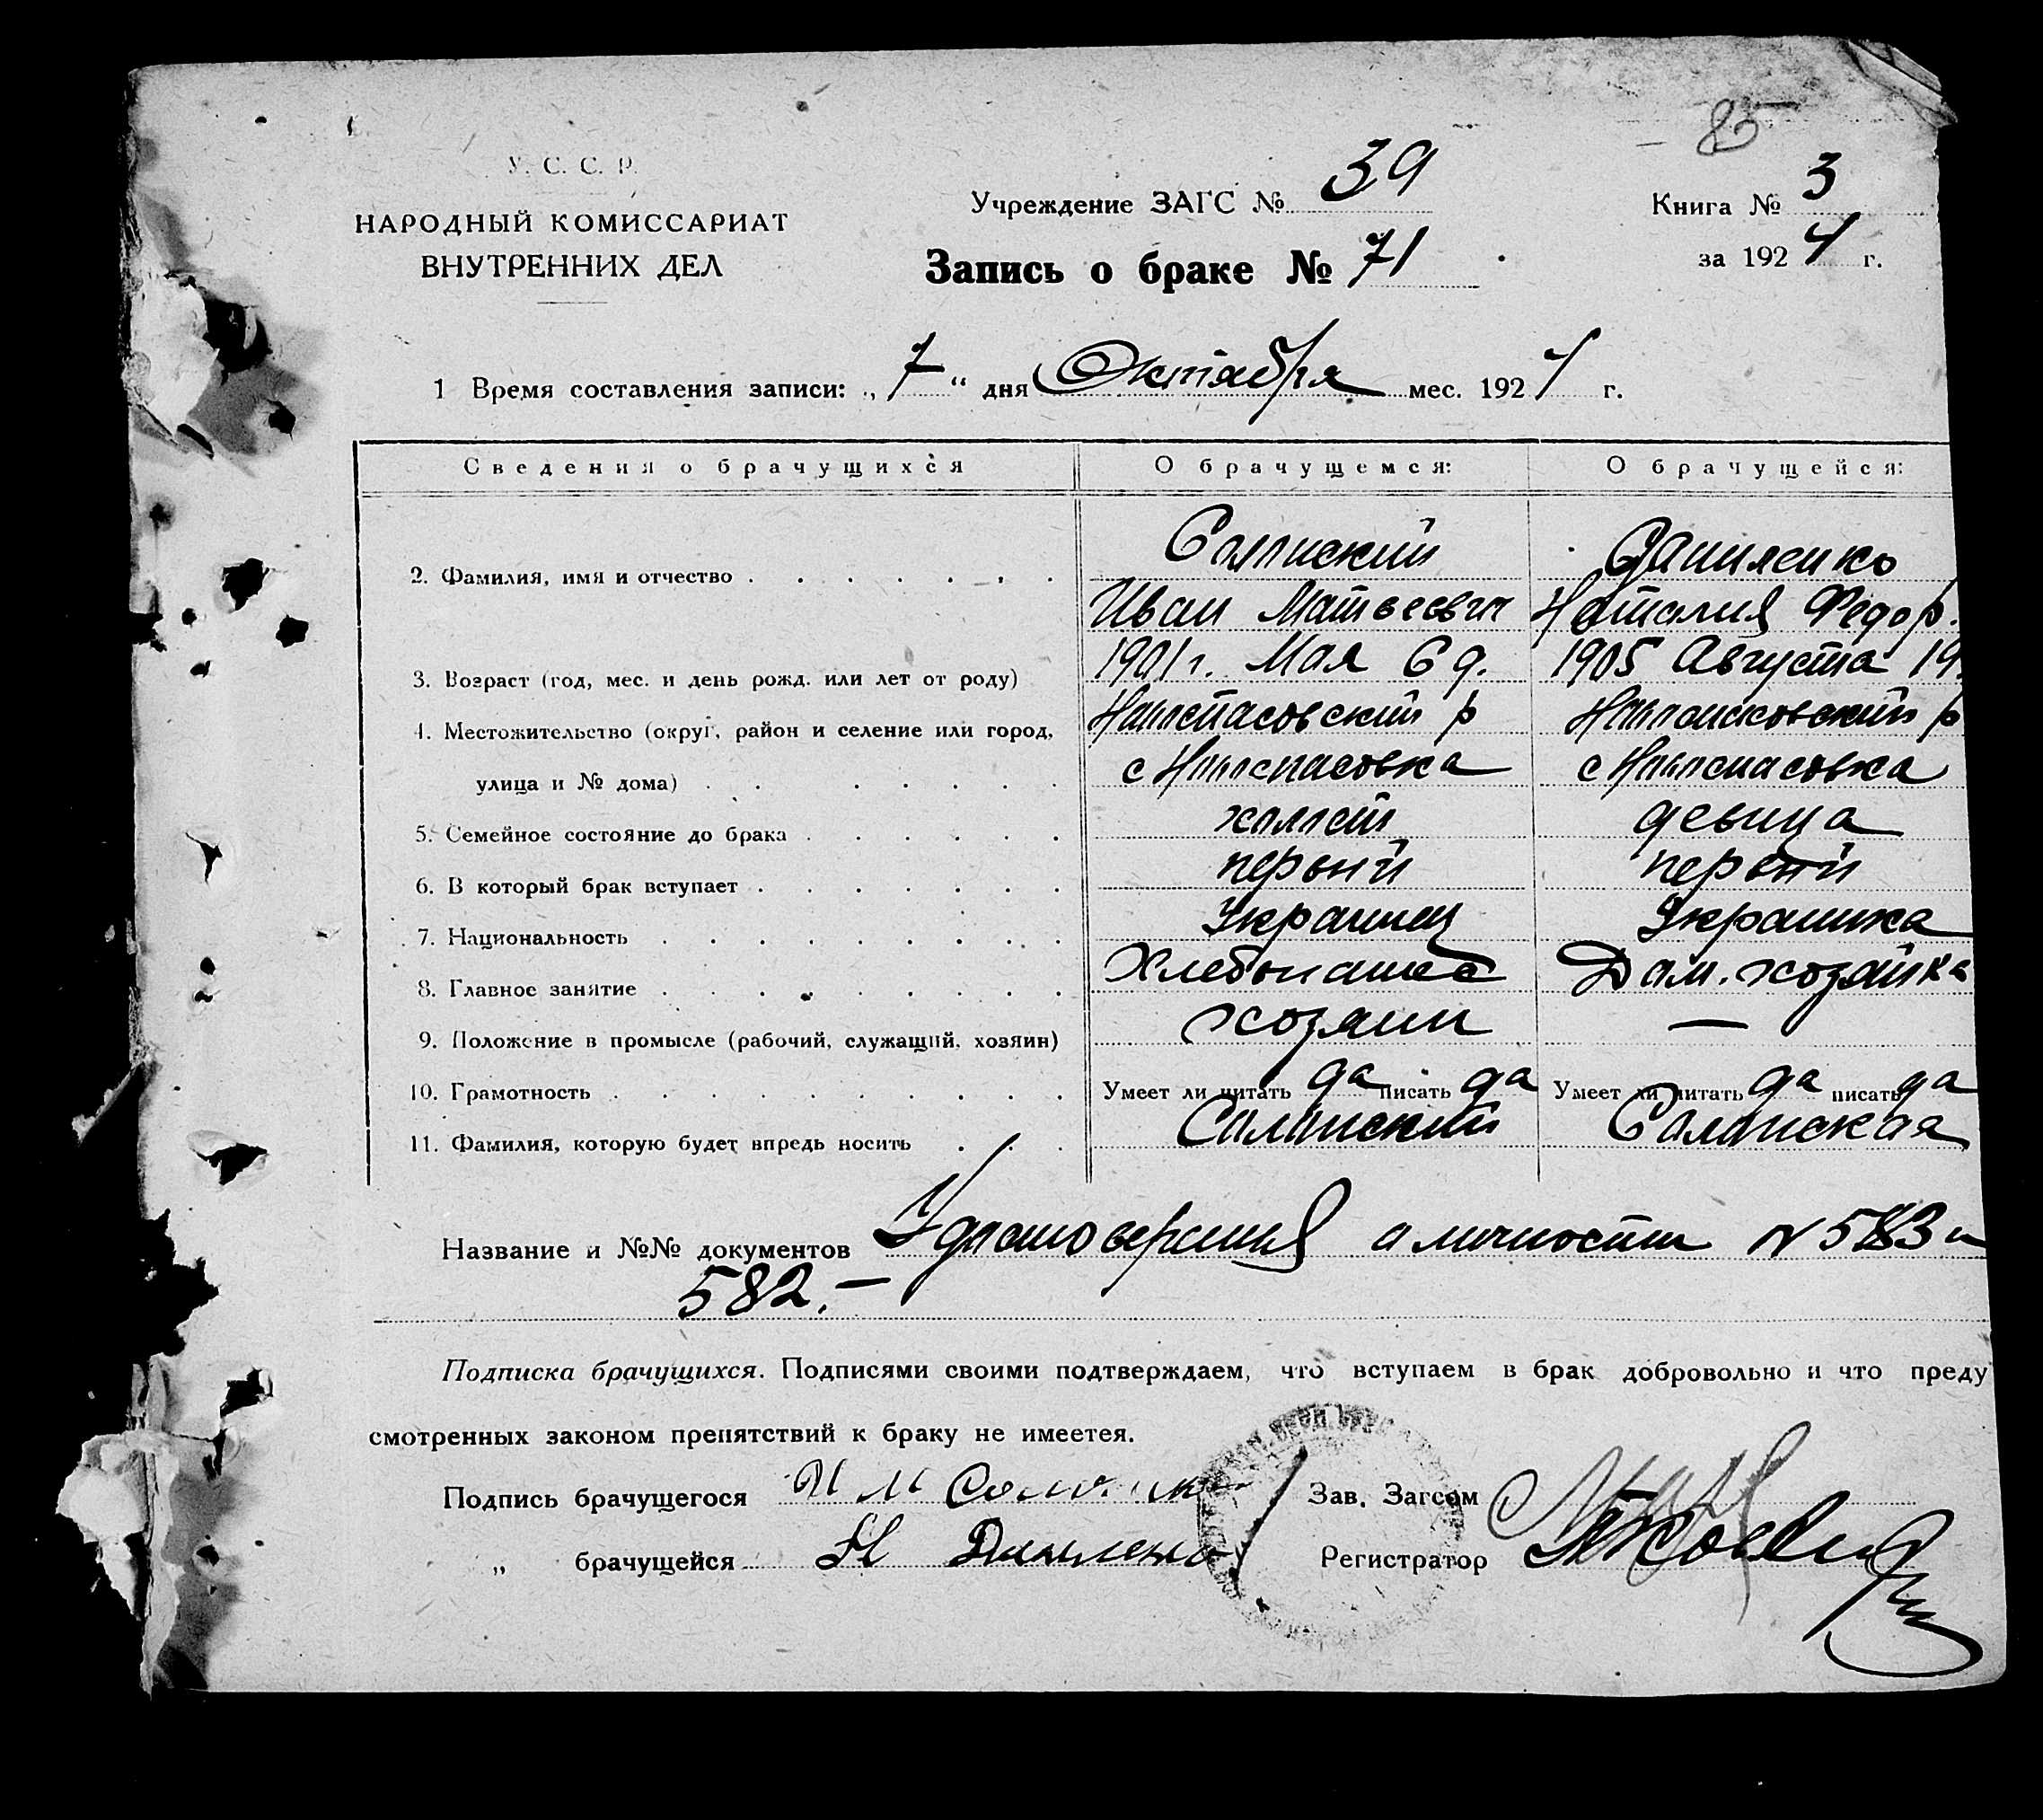 85
У. С. С. Р.
НАРОДНЫЙ КОМИССАРИАТ
ВНУТРЕННИХ ДЕЛ
Учреждение ЗАГС № 39
Книга № 3
Запись о браке № 71
за 1924 г.
1 Время составления записи: „7“ дня Октября мес. 1924 г.
Сведения о брачущихся О брачущемся: О брачущейся:
2. Фамилия, имя и отчество Даниленко
Иван Матвеевич Наталия Федор.
3. Возраст (год, мес. и день рожд. или лет от роду) 1901 г. Мая 6 д. 1905 Августа 19
4. Местожительство (округ, район и селение или город, р р
улица и № дома) с с
5. Семейное состояние до брака холост девица
6. В который брак вступает первый первый
7. Национальность Украинец Украинка
8. Главное занятие Дом. хозяйка
9. Положение в промысле (рабочий, служащий, хозяин) хозяин —
10. Грамотность Умеет ли читать да писать да Умеет ли читать да писать да
11. Фамилия, которую будет впредь носить Солонский Солонская
Название и №№ документов Удостоверения о личности № 583 и
582.—
Подписка брачущихся. Подписями своими подтверждаем, что вступаем в брак добровольно и что преду
смотренных законом препятствий к браку не имеется.
Подпись брачущегося И М Зав. Загсом
„ брачущейся Н Регистратор